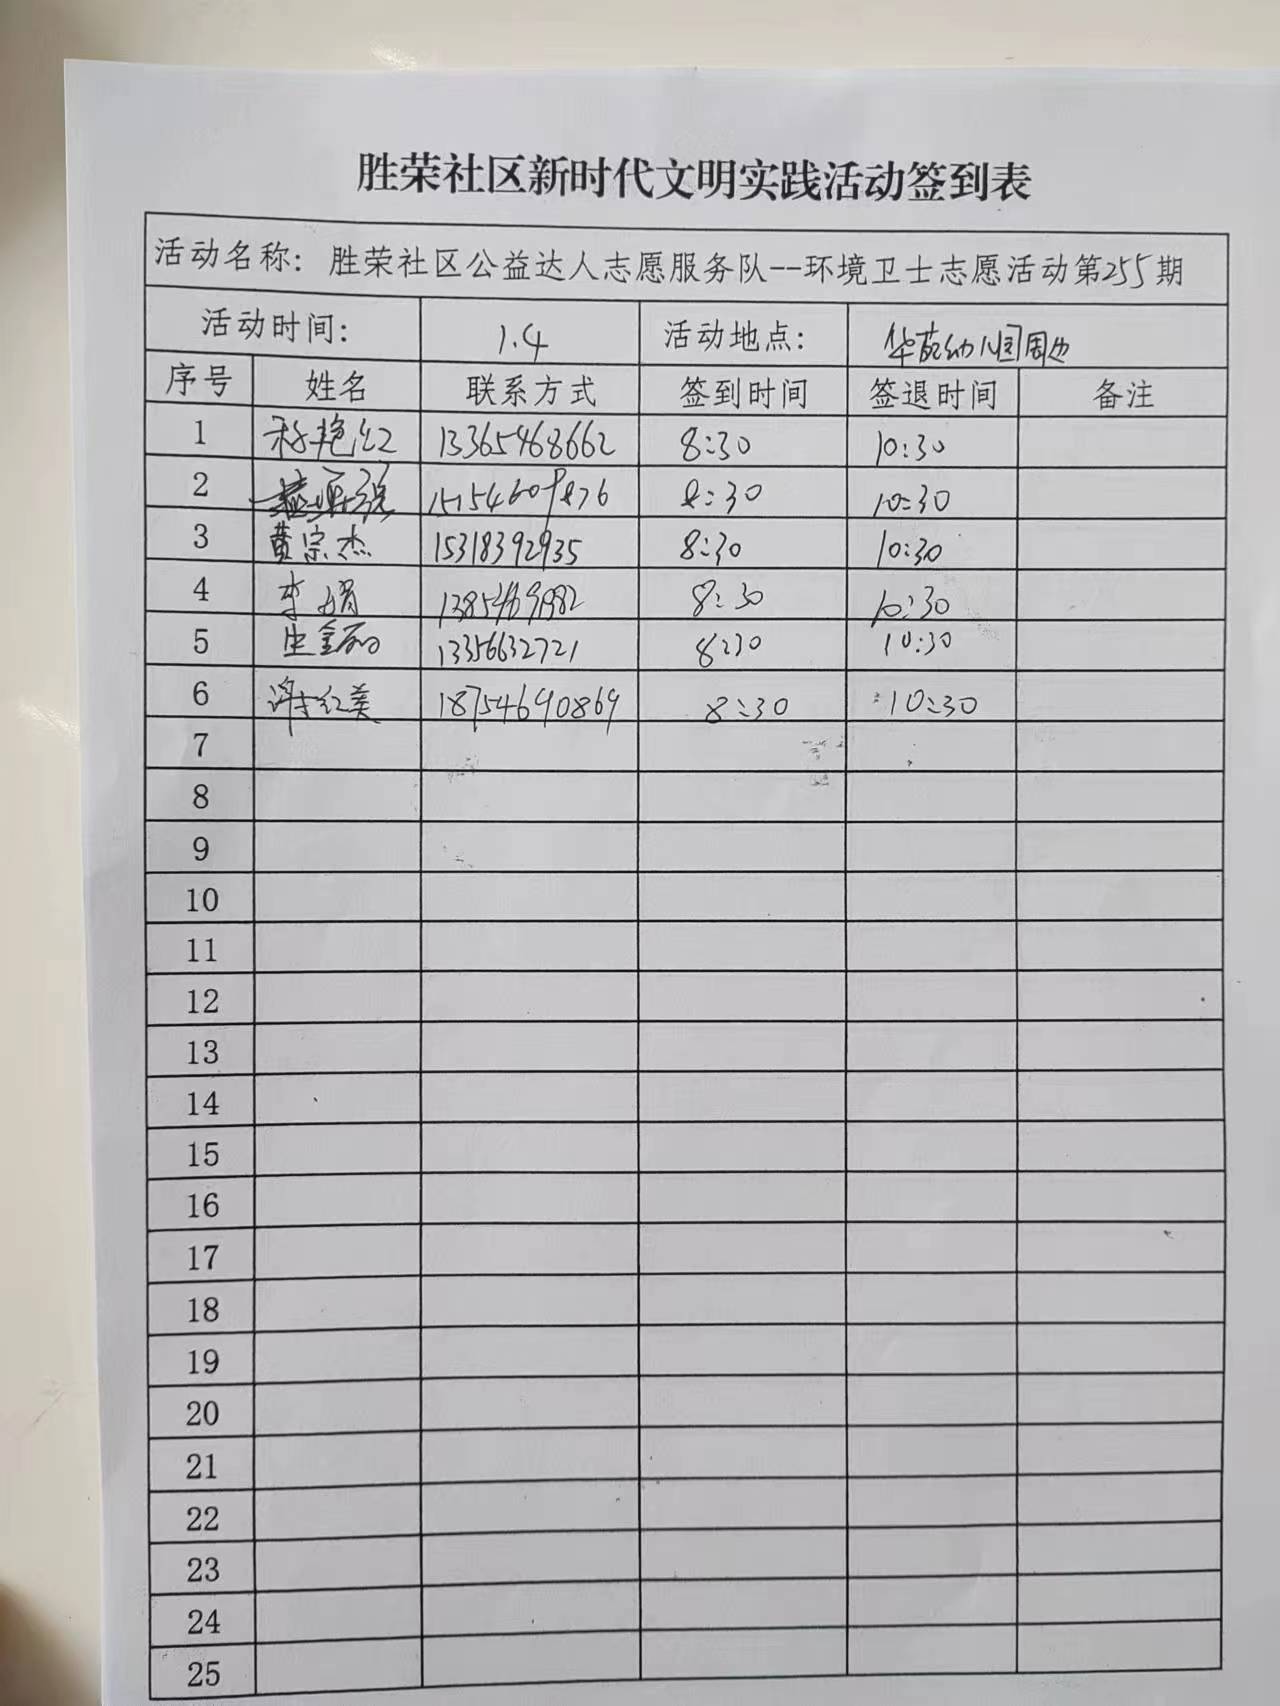 胜荣社区新时代文明实践活动签到表
活动名称: 胜荣社区公益达人志愿服务队--环境卫士志愿活动第255期
活动时间: 1.4 活动地点: 幼儿园周边
序号 姓名 联系方式 签到时间 签退时间 备注
1 艳红 13365468662 8:30 10:30
2 8:30 10:30
3 黄宗杰 15318392935 8:30 10:30
4 李娟 8:30 10:30
5 13356632721 8:30 10:30
6 许红美 18754690869 8:30 10:30
7
8
9
10
11
12
13
14
15
16
17
18
19
20
21
22
23
24
25